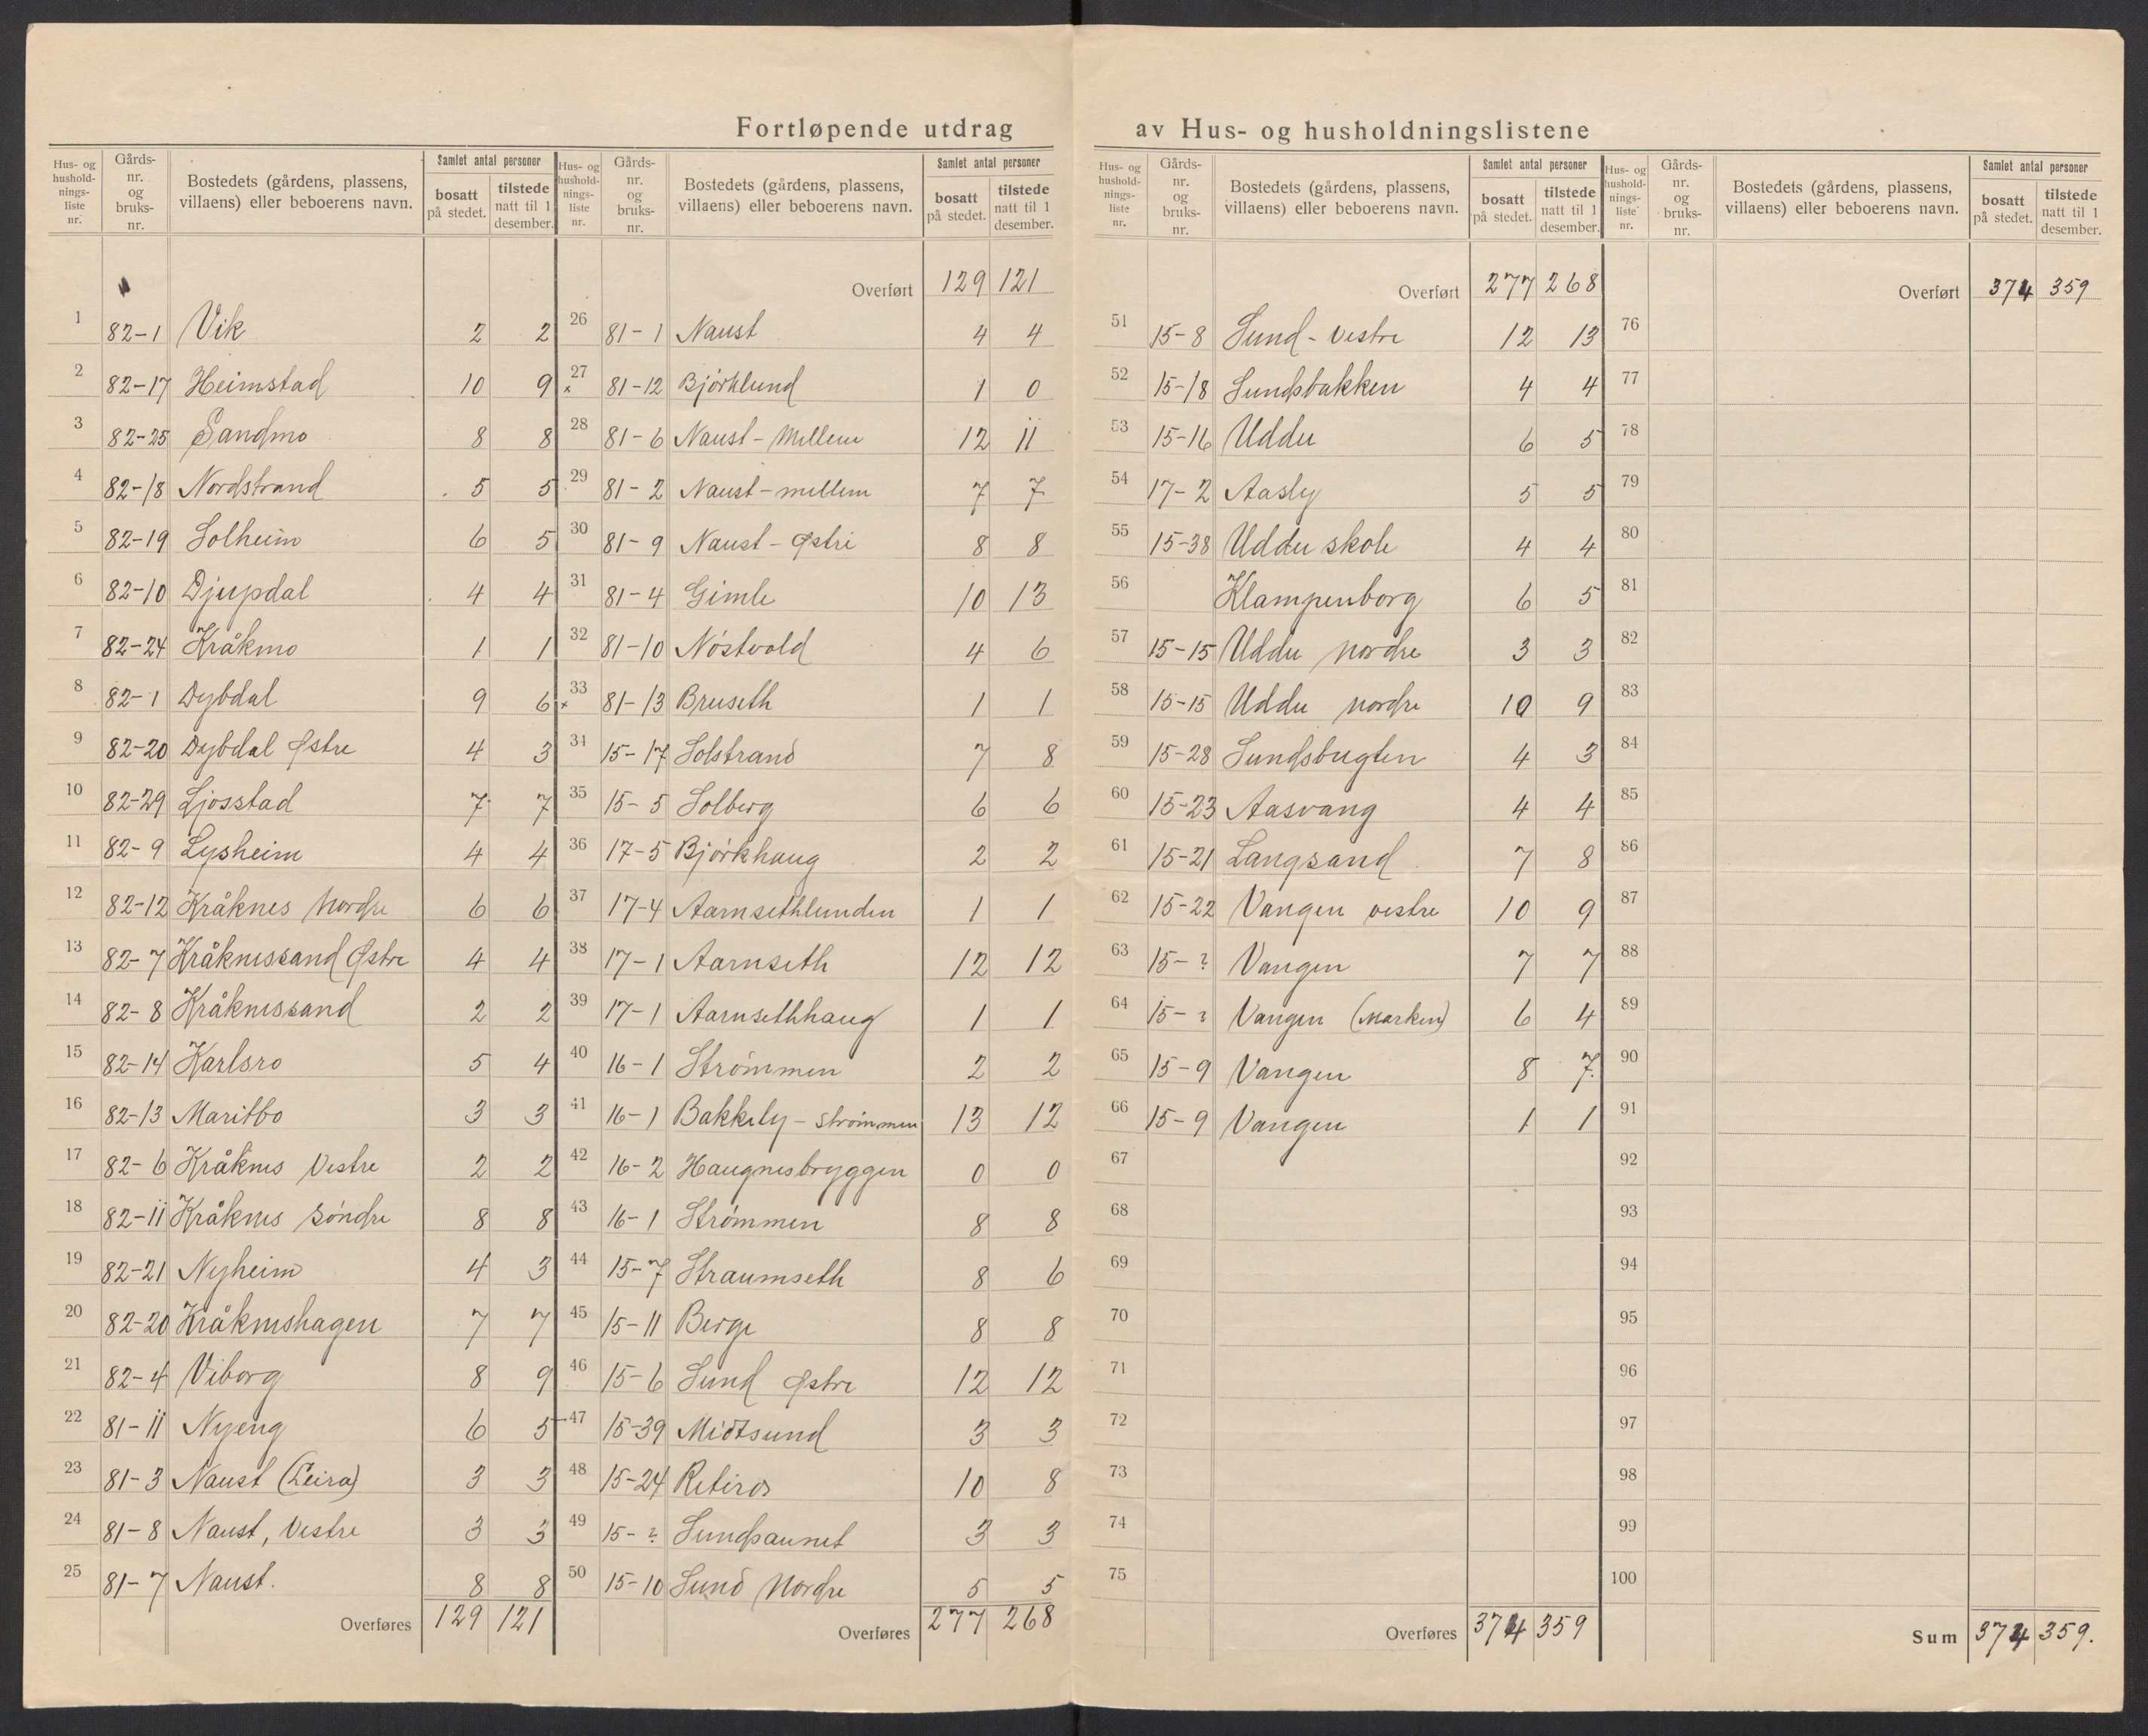 Fortløpende utdrag av Hus- og husholdningslistene
Hus- og hushold-nings-liste nr. | Gårds-nr. og bruks-nr. | Bostedets (gårdens, plassens, villaens) eller beboerens navn. | Samlet antal personer | bosatt på stedet. | tilstede natt til 1 desember.
1 82-1 Vik 2 2
2 82-17 Heimstad 10 9
3 82-25 Sandmo 8 8
4 82-18 Nordstrand 5 5
5 82-19 Solheim 6 5
6 82-10 Djupdal 4 4
7 82-24 Kråkmo 1 1
8 82-1 Dybdal 9 6
9 82-20 Dybdal Østre 4 3
10 82-29 Ljosstad 7 7
11 82-9 Lysheim 4 4
12 82-12 Kråknes Nordre 6 6
13 82-7 Kråknessand Østre 4 4
14 82-8 Kråknessand 2 2
15 82-14 Karlsro 5 4
16 82-13 Maritbo 3 3
17 82-6 Kråknes Vestre 2 2
18 82-11 Kråknes Söndre 8 8
19 82-21 Nyheim 4 3
20 82-20 Kråkneshagen 7 7
21 82-4 Viborg 8 9
22 81-11 Nyeng 6 5
23 81-3 Naust (Leira) 3 3
24 81-8 Naust, Vestre 3 3
25 81-7 Naust. 8 8
Overføres 129 121
Hus- og hushold-nings-liste nr. | Gårds-nr. og bruks-nr. | Bostedets (gårdens, plassens, villaens) eller beboerens navn. | Samlet antal personer | bosatt på stedet. | tilstede natt til 1 desember.
Overført 129 121
26 81-1 Naust 4 4
27 x 81-12 Björklund 1 0
28 81-6 Naust - Mellem 12 11
29 81-2 Naust - mellem 7 7
30 81-9 Naust - Østre 8 8
31 81-4 Gimle 10 13
32 81-10 Nöstvold 4 6
33 x 81-13 Bruseth 1 1
34 15-17 Solstrand 7 8
35 15-5 Solberg 6 6
36 17-5 Björkhaug 2 2
37 17-4 Aarnsethlunden 1 1
38 17-1 Aarnseth 12 12
39 17-1 Aarnsethhaug 1 1
40 16-1 Strömmen 2 2
41 16-1 Bakkely - Strömmen 13 12
42 16-2 Haugnesbryggen 0 0
43 16-1 Strömmen 8 8
44 15-7 Straumseth 8 6
45 15-11 Berge 8 8
46 15-6 Sund Østre 12 12
47 15-39 Midtsund 3 3
48 15-24 Retiros 10 8
49 15-? Sundsaunet 3 3
50 15-10 Sund Nordre 5 5
Overføres 277 268
Hus- og hushold-nings-liste nr. | Gårds-nr. og bruks-nr. | Bostedets (gårdens, plassens, villaens) eller beboerens navn. | Samlet antal personer | bosatt på stedet. | tilstede natt til 1 desember.
Overført 277 268
51 15-8 Sund - Vestre 12 13
52 15-18 Sundsbakken 4 4
53 15-16 Uddu 6 5
54 17-2 Aasly 5 5
55 15-38 Uddu skole 4 4
56 Klampenborg 6 5
57 15-15 Uddu Nordre 3 3
58 15-15 Uddu Nordre 10 9
59 15-28 Sundsbugten 4 3
60 15-23 Aasvang 4 4
61 15-21 Langsand 7 8
62 15-22 Vangen vestre 10 9
63 15-? Vangen 7 7
64 15-? Vangen (Marken) 6 4
65 15-9 Vangen 8 7.
66 15-9 Vangen 1 1
67
68
69
70
71
72
73
74
75
Overføres 374 359
Hus- og hushold-nings-liste nr. | Gårds-nr. og bruks-nr. | Bostedets (gårdens, plassens, villaens) eller beboerens navn. | Samlet antal personer | bosatt på stedet. | tilstede natt til 1 desember.
Overført 374 359
76
77
78
79
80
81
82
83
84
85
86
87
88
89
90
91
92
93
94
95
96
97
98
99
100
Sum 374 359.